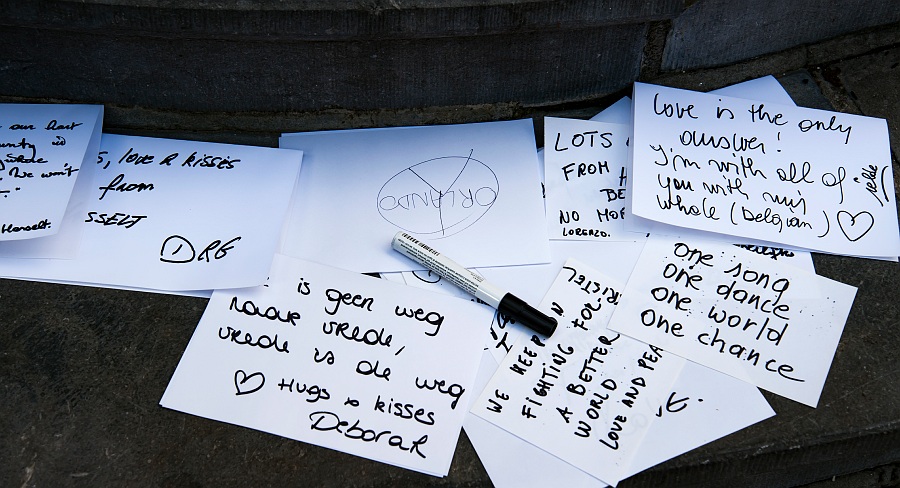 our hart
Herselt.
S, love & kisses
from
SSELT
DRE
ORLANDO
LOTS
FROM H
BE
NO MOR
LORENZO.
Love is the only
answer!
y'm with all of
you with mij
whole (Belgian) ♡
jelde
is geen weg
naar vrede,
vrede is de weg
♡ Hugs & kisses
Deborah
KRISTEL
WE KEEP ON
FIGHTING FOR
A BETTER
WORLD
LOVE AND PEA
One song
One dance
One world
One chance